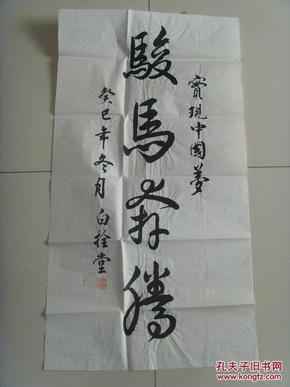 實現中國夢
駿馬奔騰
癸巳年冬月白拴堂
孔夫子旧书网